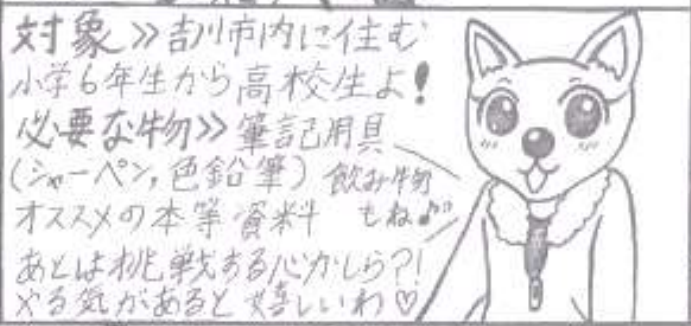 対象≫吉川市内に住む
小学6年生から高校生よ!
必要な物≫筆記用具
(シャーペン,色鉛筆) 飲み物
オススメの本等資料 もね♪
あとは挑戦する心かしら?!
やる気があると嬉しいわ♡